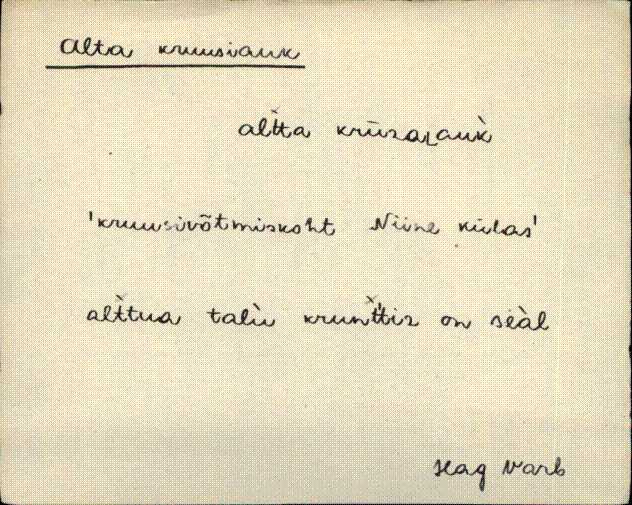 Alta kruusiauk
alt̀ta krūsa‿auk̀
'kruusivõtmiskoht Niine külas'
alt̀tua talìu krunt̀tis on seàl
Hag Varb